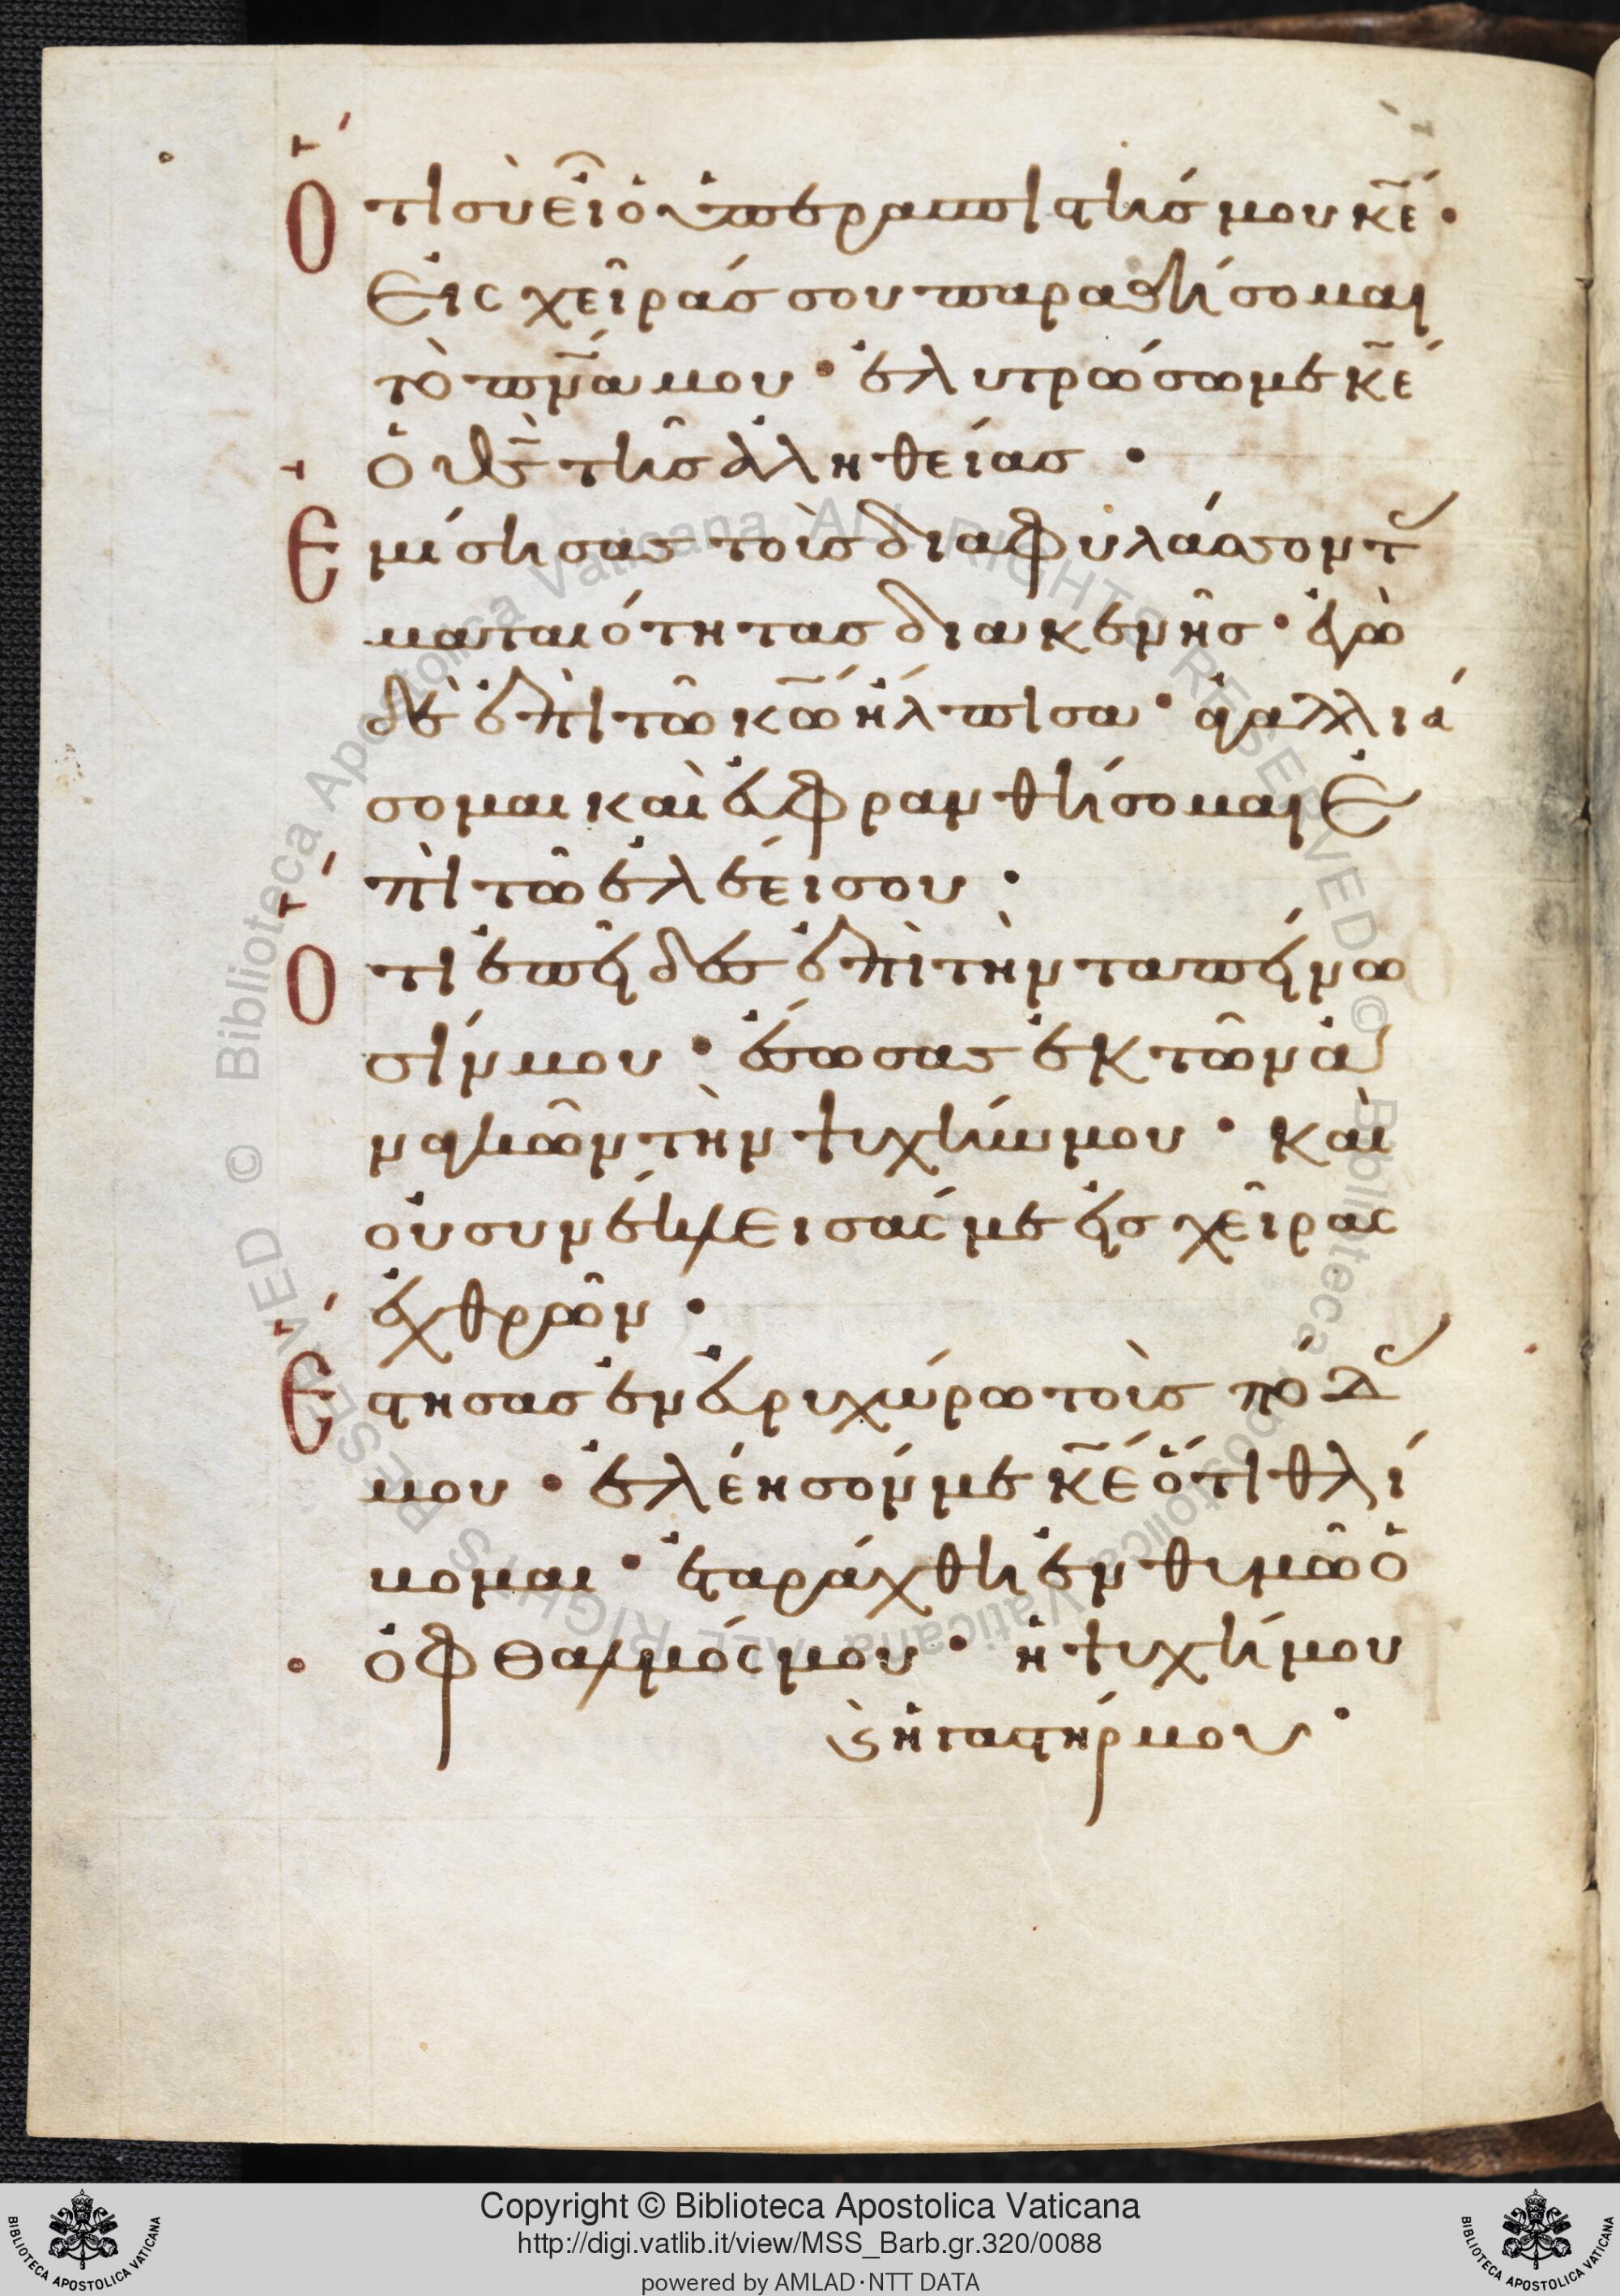 Ὅτι σὺ εἶ ὁ ὑπερασπιστής μου κε·
Εἰς χεῖράς σου παραθήσομαι
τὸ πνα μου· ἐλυτρώσω με κε
ὁ θς τῆς ἀληθείας·
Ἐμίσησας τοὺς διαφυλάσσοντ
ματαιότητας διακενῆς· ἐγὼ
δὲ ἐπὶ τῶ κω ἤλπισα· ἀγαλλιά
σομαι καὶ εὐφρανθήσομαι ἐ
πὶ τῶ ἐλέει σου·
Ὅτι ἐπεῖδες ἐπὶ τὴν ταπείνω
σίν μου· ἔσωσας ἐκ τῶν ἀ
ναγκῶν τὴν ψυχήν μου· καὶ
οὐ συνέκλεισάς με εἰς χεῖρας
ἐχθρῶν·
Ἔστησας ἐν εὐρυχώρω τοὺς πόδ
μου· ἐλέησόν με κε ὅτι θλί
βομαι· ἐταράχθη ἐν θυμῶ ὁ
ὀφθαλμός μου· ἡ ψυχή μου
ϗ ἡ γαστήρ μου·
Copyright © Biblioteca Apostolica Vaticana
http://digi.vatlib.it/view/MSS_Barb.gr.320/0088
powered by AMLAD·NTT DATA
BIBLIOTECA APOSTOLICA VATICANA
BIBLIOTECA APOSTOLICA VATICANA
© Biblioteca Apostolica Vaticana ALL RIGHTS RESERVED © Biblioteca Apostolica Vaticana ALL RIGHTS RESERVED